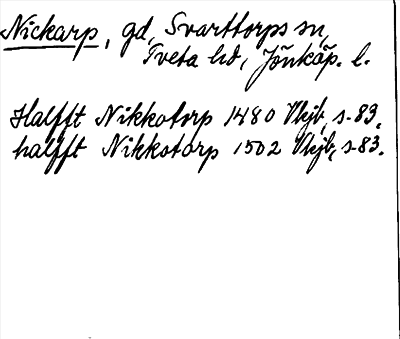 Nickarp, gd, Svarttorps sn,
Tveta hd, Jönköp. l.
Halfft Nikkotorp 1480 Vkjb, s. 89.
halfft Nikkotorp 1502 Vkjb, s. 83.